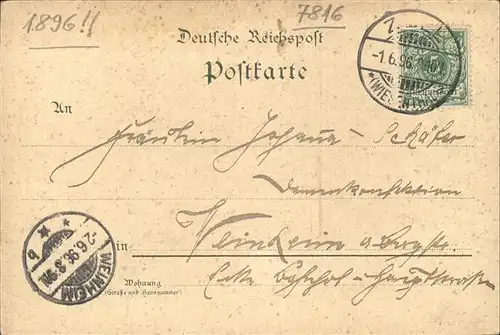 1896!!
7816
Deutsche Reichspost
Postkarte
-1.6.96
(WIESENTHAL)
An
Fräulein Johanna Schäfer
Damenkonfektion
in Weinheim a Bergstr.
Ecke Bahnhof- u Hauptstrasse
Wohnung
(Straße und Hausnummer)
WEINHEIM
-2.6.96.8-9V.
b